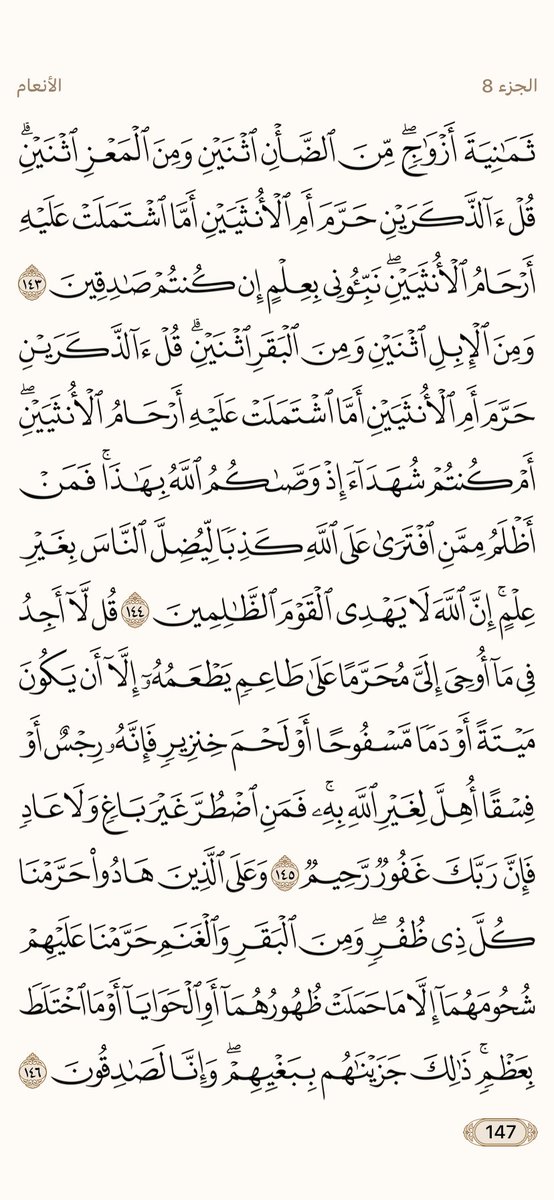 الجزء 8 الأنعام
ثَمَٰنِيَةَ أَزْوَٰجٖۖ مِّنَ ٱلضَّأْنِ ٱثْنَيْنِ وَمِنَ ٱلْمَعْزِ ٱثْنَيْنِۗ
قُلْ ءَآلذَّكَرَيْنِ حَرَّمَ أَمِ ٱلْأُنثَيَيْنِ أَمَّا ٱشْتَمَلَتْ عَلَيْهِ
أَرْحَامُ ٱلْأُنثَيَيْنِۖ نَبِّـُٔونِى بِعِلْمٍ إِن كُنتُمْ صَٰدِقِينَ ١٤٣
وَمِنَ ٱلْإِبِلِ ٱثْنَيْنِ وَمِنَ ٱلْبَقَرِ ٱثْنَيْنِۗ قُلْ ءَآلذَّكَرَيْنِ
حَرَّمَ أَمِ ٱلْأُنثَيَيْنِ أَمَّا ٱشْتَمَلَتْ عَلَيْهِ أَرْحَامُ ٱلْأُنثَيَيْنِۖ
أَمْ كُنتُمْ شُهَدَآءَ إِذْ وَصَّىٰكُمُ ٱللَّهُ بِهَٰذَاۚ فَمَنْ
أَظْلَمُ مِمَّنِ ٱفْتَرَىٰ عَلَى ٱللَّهِ كَذِبًا لِّيُضِلَّ ٱلنَّاسَ بِغَيْرِ
عِلْمٍۚ إِنَّ ٱللَّهَ لَا يَهْدِى ٱلْقَوْمَ ٱلظَّٰلِمِينَ ١٤٤ قُل لَّآ أَجِدُ
فِى مَآ أُوحِىَ إِلَىَّ مُحَرَّمًا عَلَىٰ طَاعِمٍ يَطْعَمُهُۥٓ إِلَّآ أَن يَكُونَ
مَيْتَةً أَوْ دَمًا مَّسْفُوحًا أَوْ لَحْمَ خِنزِيرٍ فَإِنَّهُۥ رِجْسٌ أَوْ
فِسْقًا أُهِلَّ لِغَيْرِ ٱللَّهِ بِهِۦۚ فَمَنِ ٱضْطُرَّ غَيْرَ بَاغٍ وَلَا عَادٍ
فَإِنَّ رَبَّكَ غَفُورٌ رَّحِيمٌ ١٤٥ وَعَلَى ٱلَّذِينَ هَادُوا۟ حَرَّمْنَا
كُلَّ ذِى ظُفُرٍۖ وَمِنَ ٱلْبَقَرِ وَٱلْغَنَمِ حَرَّمْنَا عَلَيْهِمْ
شُحُومَهُمَآ إِلَّا مَا حَمَلَتْ ظُهُورُهُمَآ أَوِ ٱلْحَوَايَآ أَوْ مَا ٱخْتَلَطَ
بِعَظْمٍۚ ذَٰلِكَ جَزَيْنَٰهُم بِبَغْيِهِمْۖ وَإِنَّا لَصَٰدِقُونَ ١٤٦
147